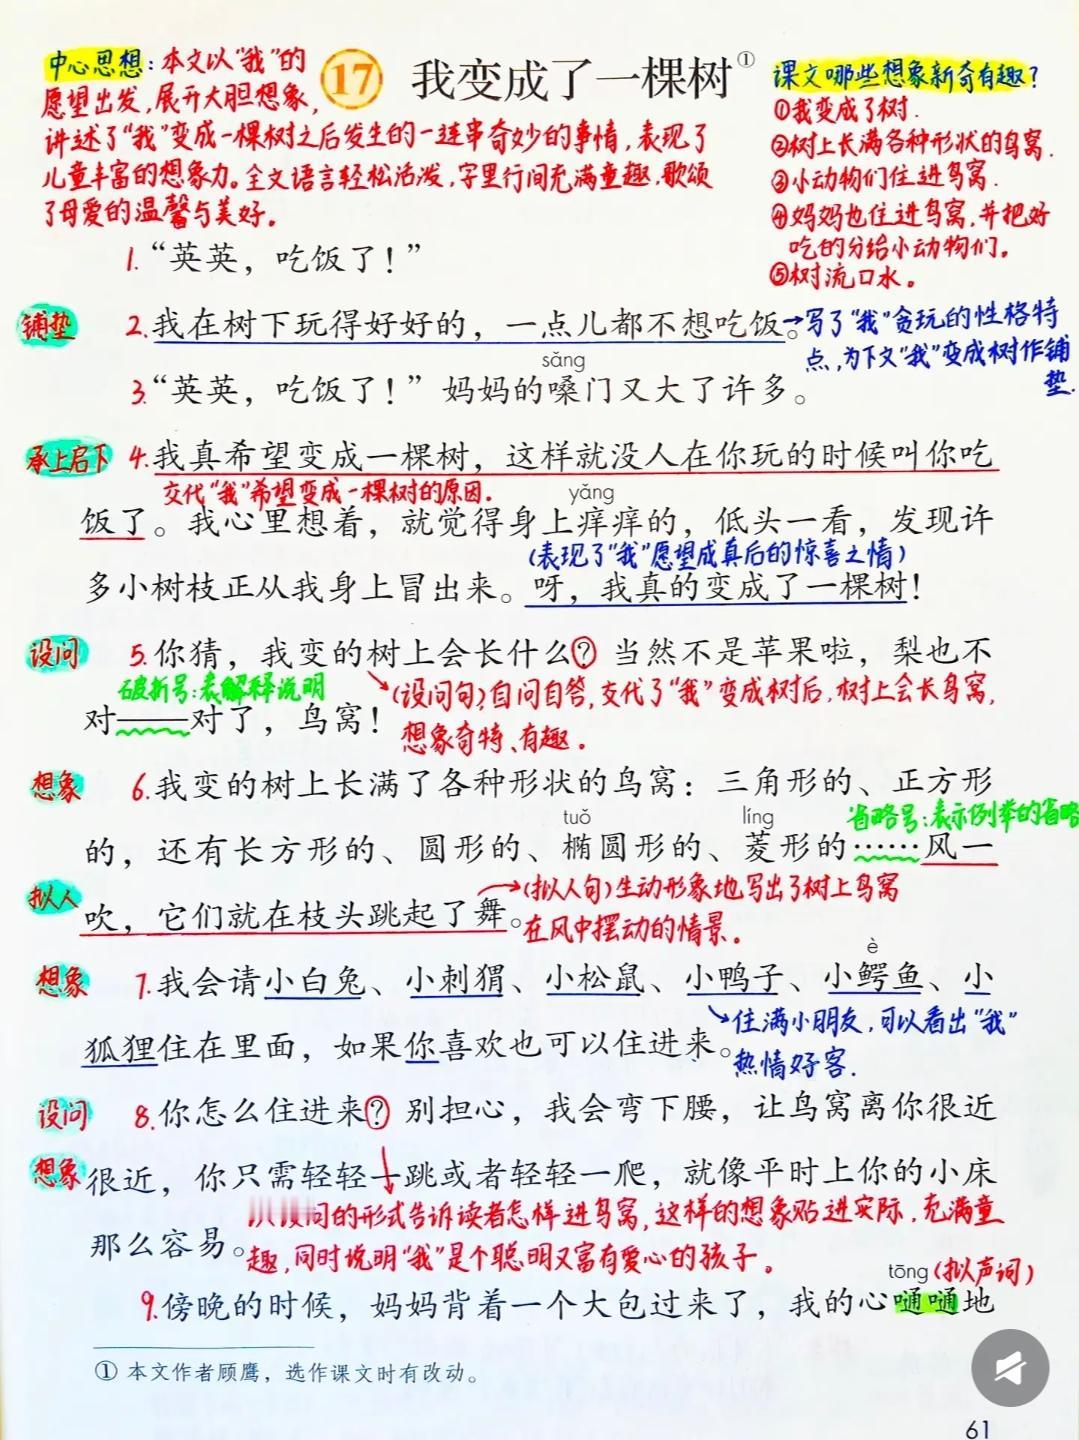 中心思想：本文以“我”的
愿望出发，展开大胆想象，
讲述了“我”变成一棵树之后发生的一连串奇妙的事情，表现了
儿童丰富的想象力。全文语言轻松活泼，字里行间充满童趣，歌颂
了母爱的温馨与美好。
17 我变成了一棵树①
课文哪些想象新奇有趣？
①我变成了树.
②树上长满各种形状的鸟窝.
③小动物们住进鸟窝.
④妈妈也住进鸟窝，并把好
吃的分给小动物们。
⑤树流口水。
1.“英英，吃饭了！”
铺垫
2.我在树下玩得好好的，一点儿都不想吃饭。
写了“我”贪玩的性格特
点，为下文“我”变成树作铺
垫.
sǎng
3.“英英，吃饭了！”妈妈的嗓门又大了许多。
承上启下
4.我真希望变成一棵树，这样就没人在你玩的时候叫你吃
交代“我”希望变成一棵树的原因.
yǎng
饭了。我心里想着，就觉得身上痒痒的，低头一看，发现许
(表现了“我”愿望成真后的惊喜之情)
多小树枝正从我身上冒出来。呀，我真的变成了一棵树！
设问
5.你猜，我变的树上会长什么？当然不是苹果啦，梨也不
破折号：表解释说明
(设问句)自问自答，交代了“我”变成树后，树上会长鸟窝，
对——对了，鸟窝！
想象奇特、有趣。
想象
6.我变的树上长满了各种形状的鸟窝：三角形的、正方形
tuǒ líng
省略号：表示例举的省略
的，还有长方形的、圆形的、椭圆形的、菱形的……风一
拟人
(拟人句)生动形象地写出了树上鸟窝
吹，它们就在枝头跳起了舞。
在风中摆动的情景。
è
想象
7.我会请小白兔、小刺猬、小松鼠、小鸭子、小鳄鱼、小
住满小朋友，可以看出“我”
狐狸住在里面，如果你喜欢也可以住进来。
热情好客.
设问
8.你怎么住进来？别担心，我会弯下腰，让鸟窝离你很近
想象
很近，你只需轻轻一跳或者轻轻一爬，就像平时上你的小床
问的形式告诉读者怎样进鸟窝，这样的想象贴进实际，充满童
那么容易。
趣，同时说明“我”是个聪明又富有爱心的孩子。
tōng(拟声词)
9.傍晚的时候，妈妈背着一个大包过来了，我的心嗵嗵地
① 本文作者顾鹰，选作课文时有改动。
61